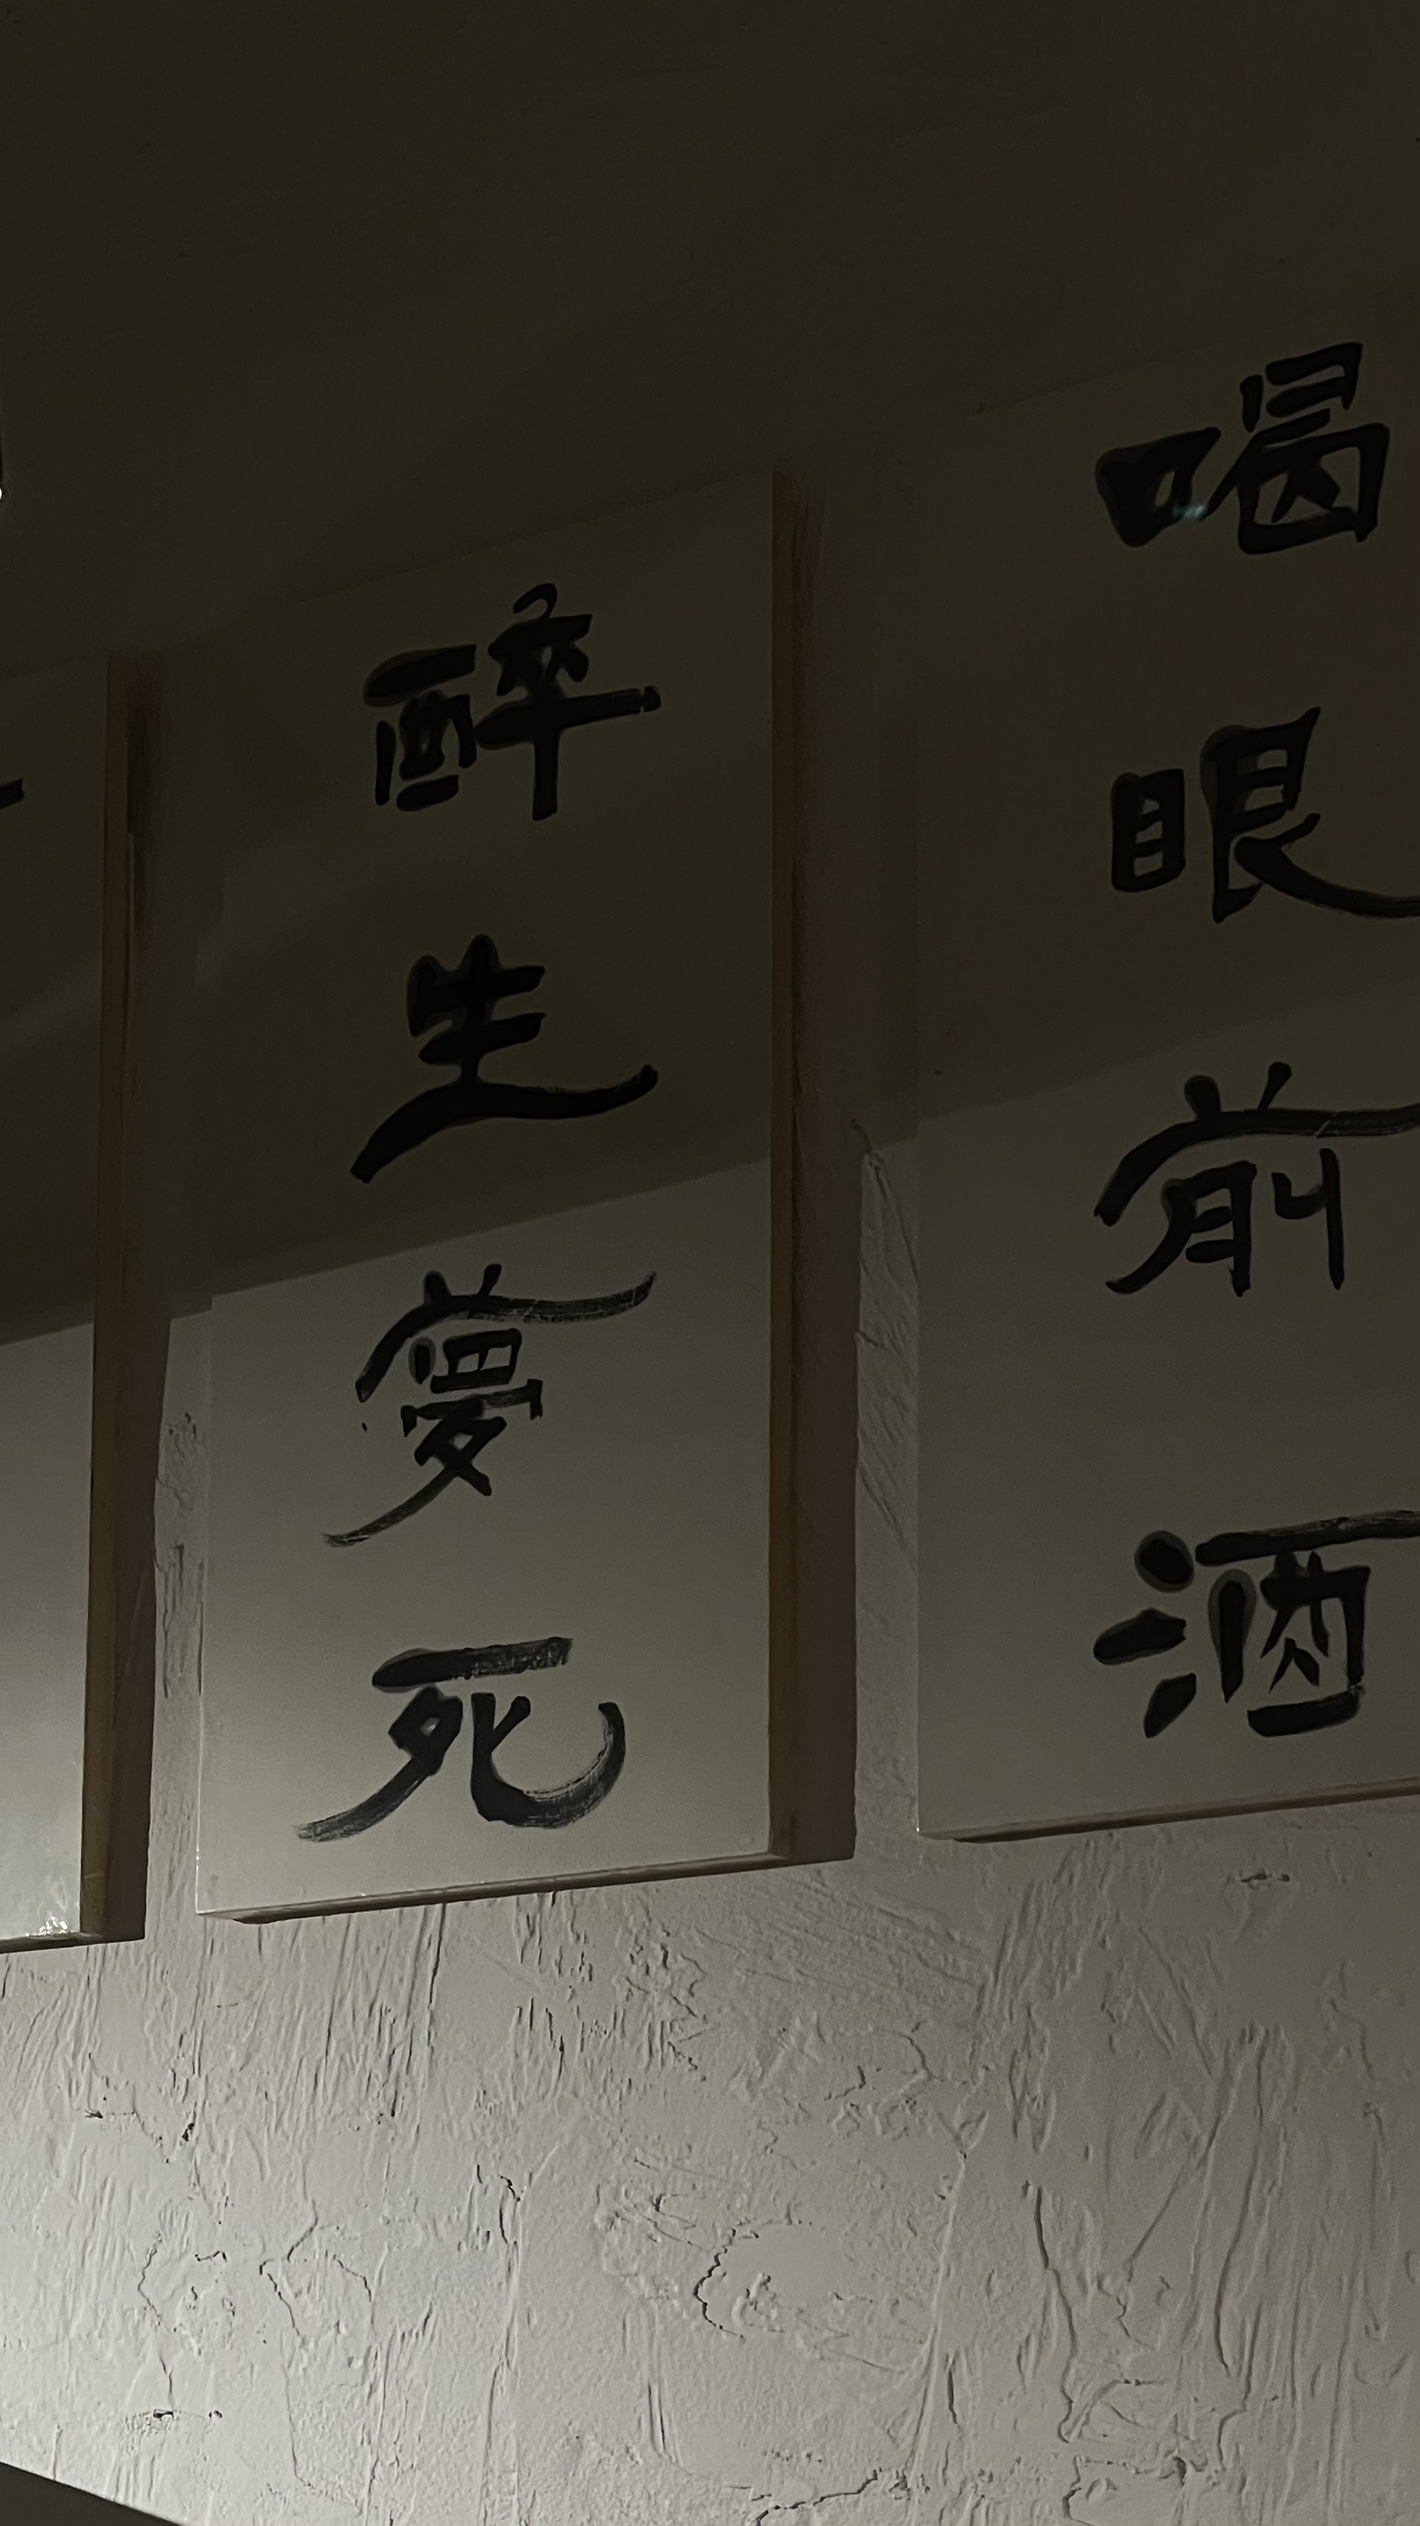 喝眼前酒
醉生夢死